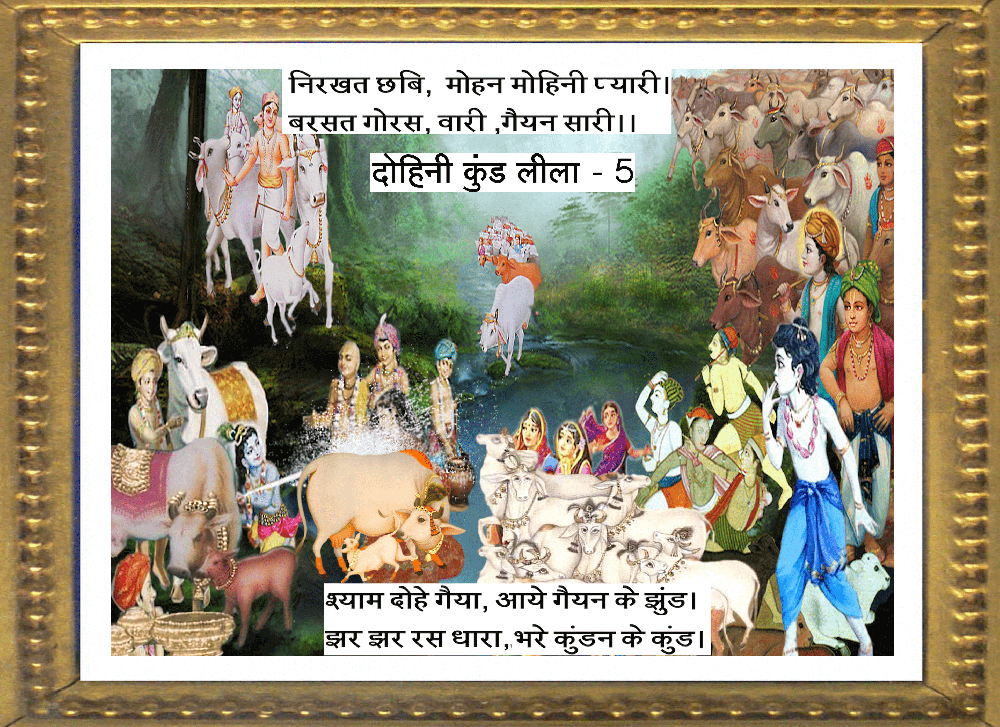 निरखत छबि, मोहन मोहिनी प्यारी।
बरसत गोरस, वारी ,गैयन सारी।।
दोहिनी कुंड लीला - 5
श्याम दोहे गैया, आये गैयन के झुंड।
झर झर रस धारा,भरे कुंडन के कुंड।